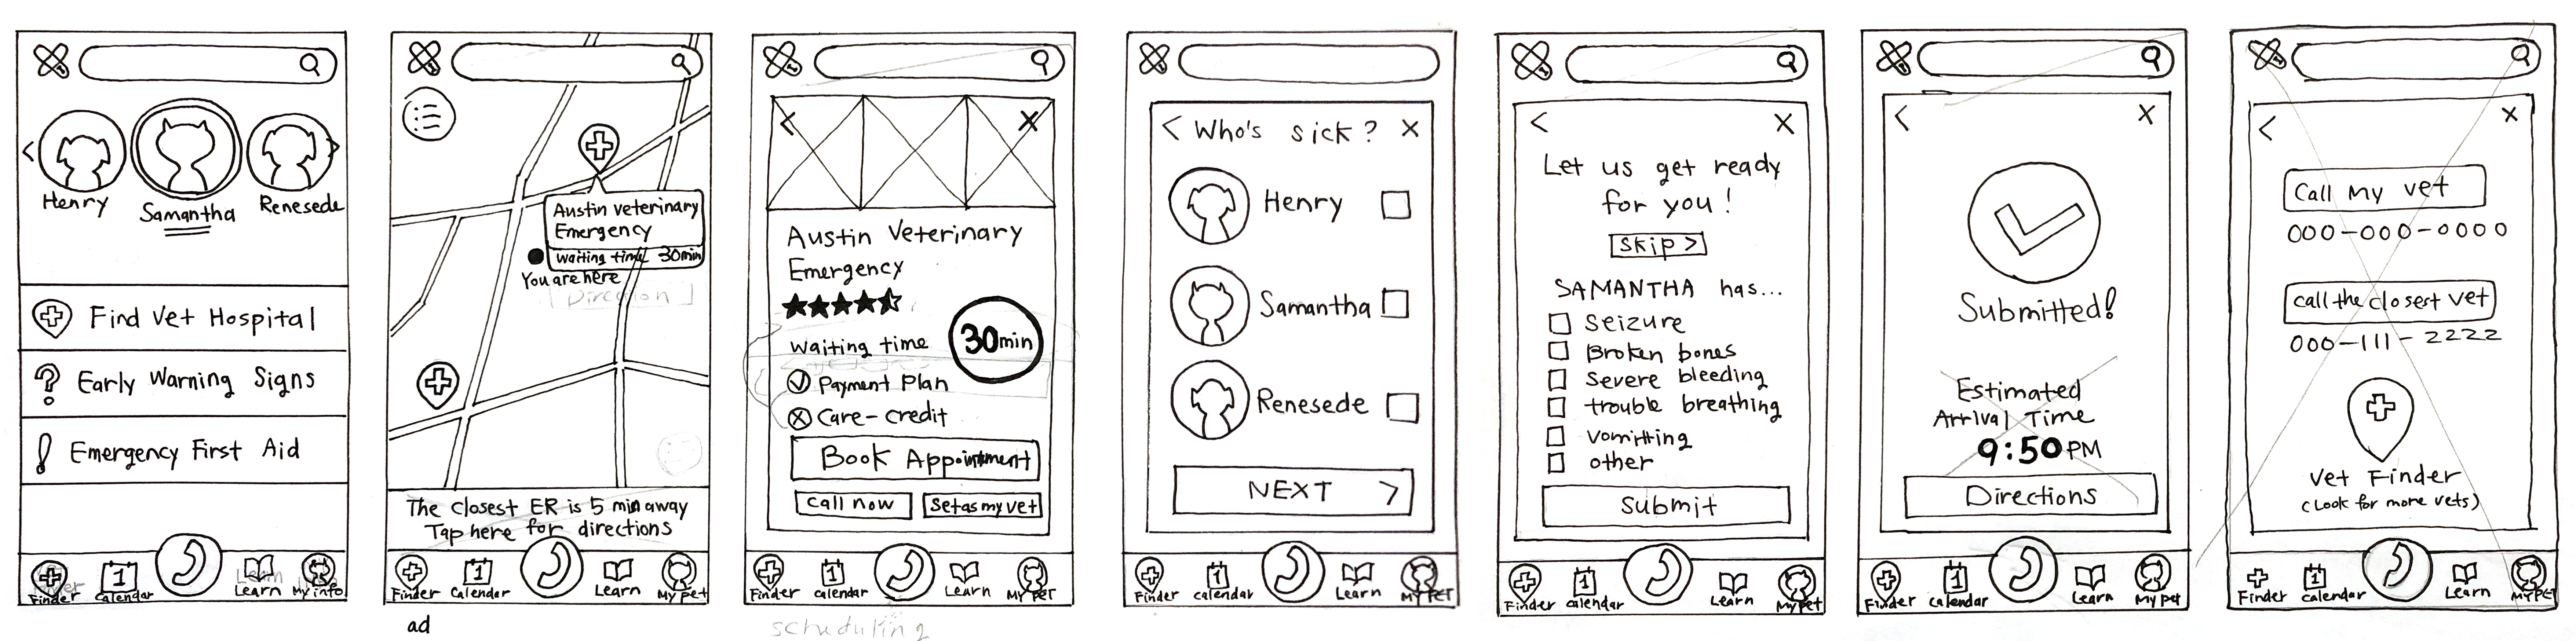 Henry
Samantha
Renesede
Find Vet Hospital
? Early Warning Signs
! Emergency First Aid
Finder
1
Calendar
Learn
Learn
My info
Austin veterinary
Emergency
waiting time 30min
You are here
Direction
The closest ER is 5 min away
Tap here for directions
Finder
1
Calendar
Learn
My pet
ad
< X
Austin Veterinary
Emergency
waiting time
30min
Payment Plan
Care-credit
Book Appointment
Call now
Set as my vet
Finder
1
calendar
Learn
My Pet
scheduling
< Who's sick? X
Henry
Samantha
Renesede
NEXT >
Finder
1
calendar
Learn
My Pet
< X
Let us get ready
for you!
Skip >
SAMANTHA has...
Seizure
Broken bones
Severe bleeding
trouble breathing
vomitting
other
Submit
Finder
1
calendar
Learn
My pet
< X
Submitted!
Estimated
Arrival Time
9:50 PM
Directions
Finder
1
calendar
Learn
My pet
< X
Call My vet
000-000-0000
call the closest vet
000-111-2222
Vet Finder
(Look for more vets)
Finder
1
calendar
Learn
My Pet